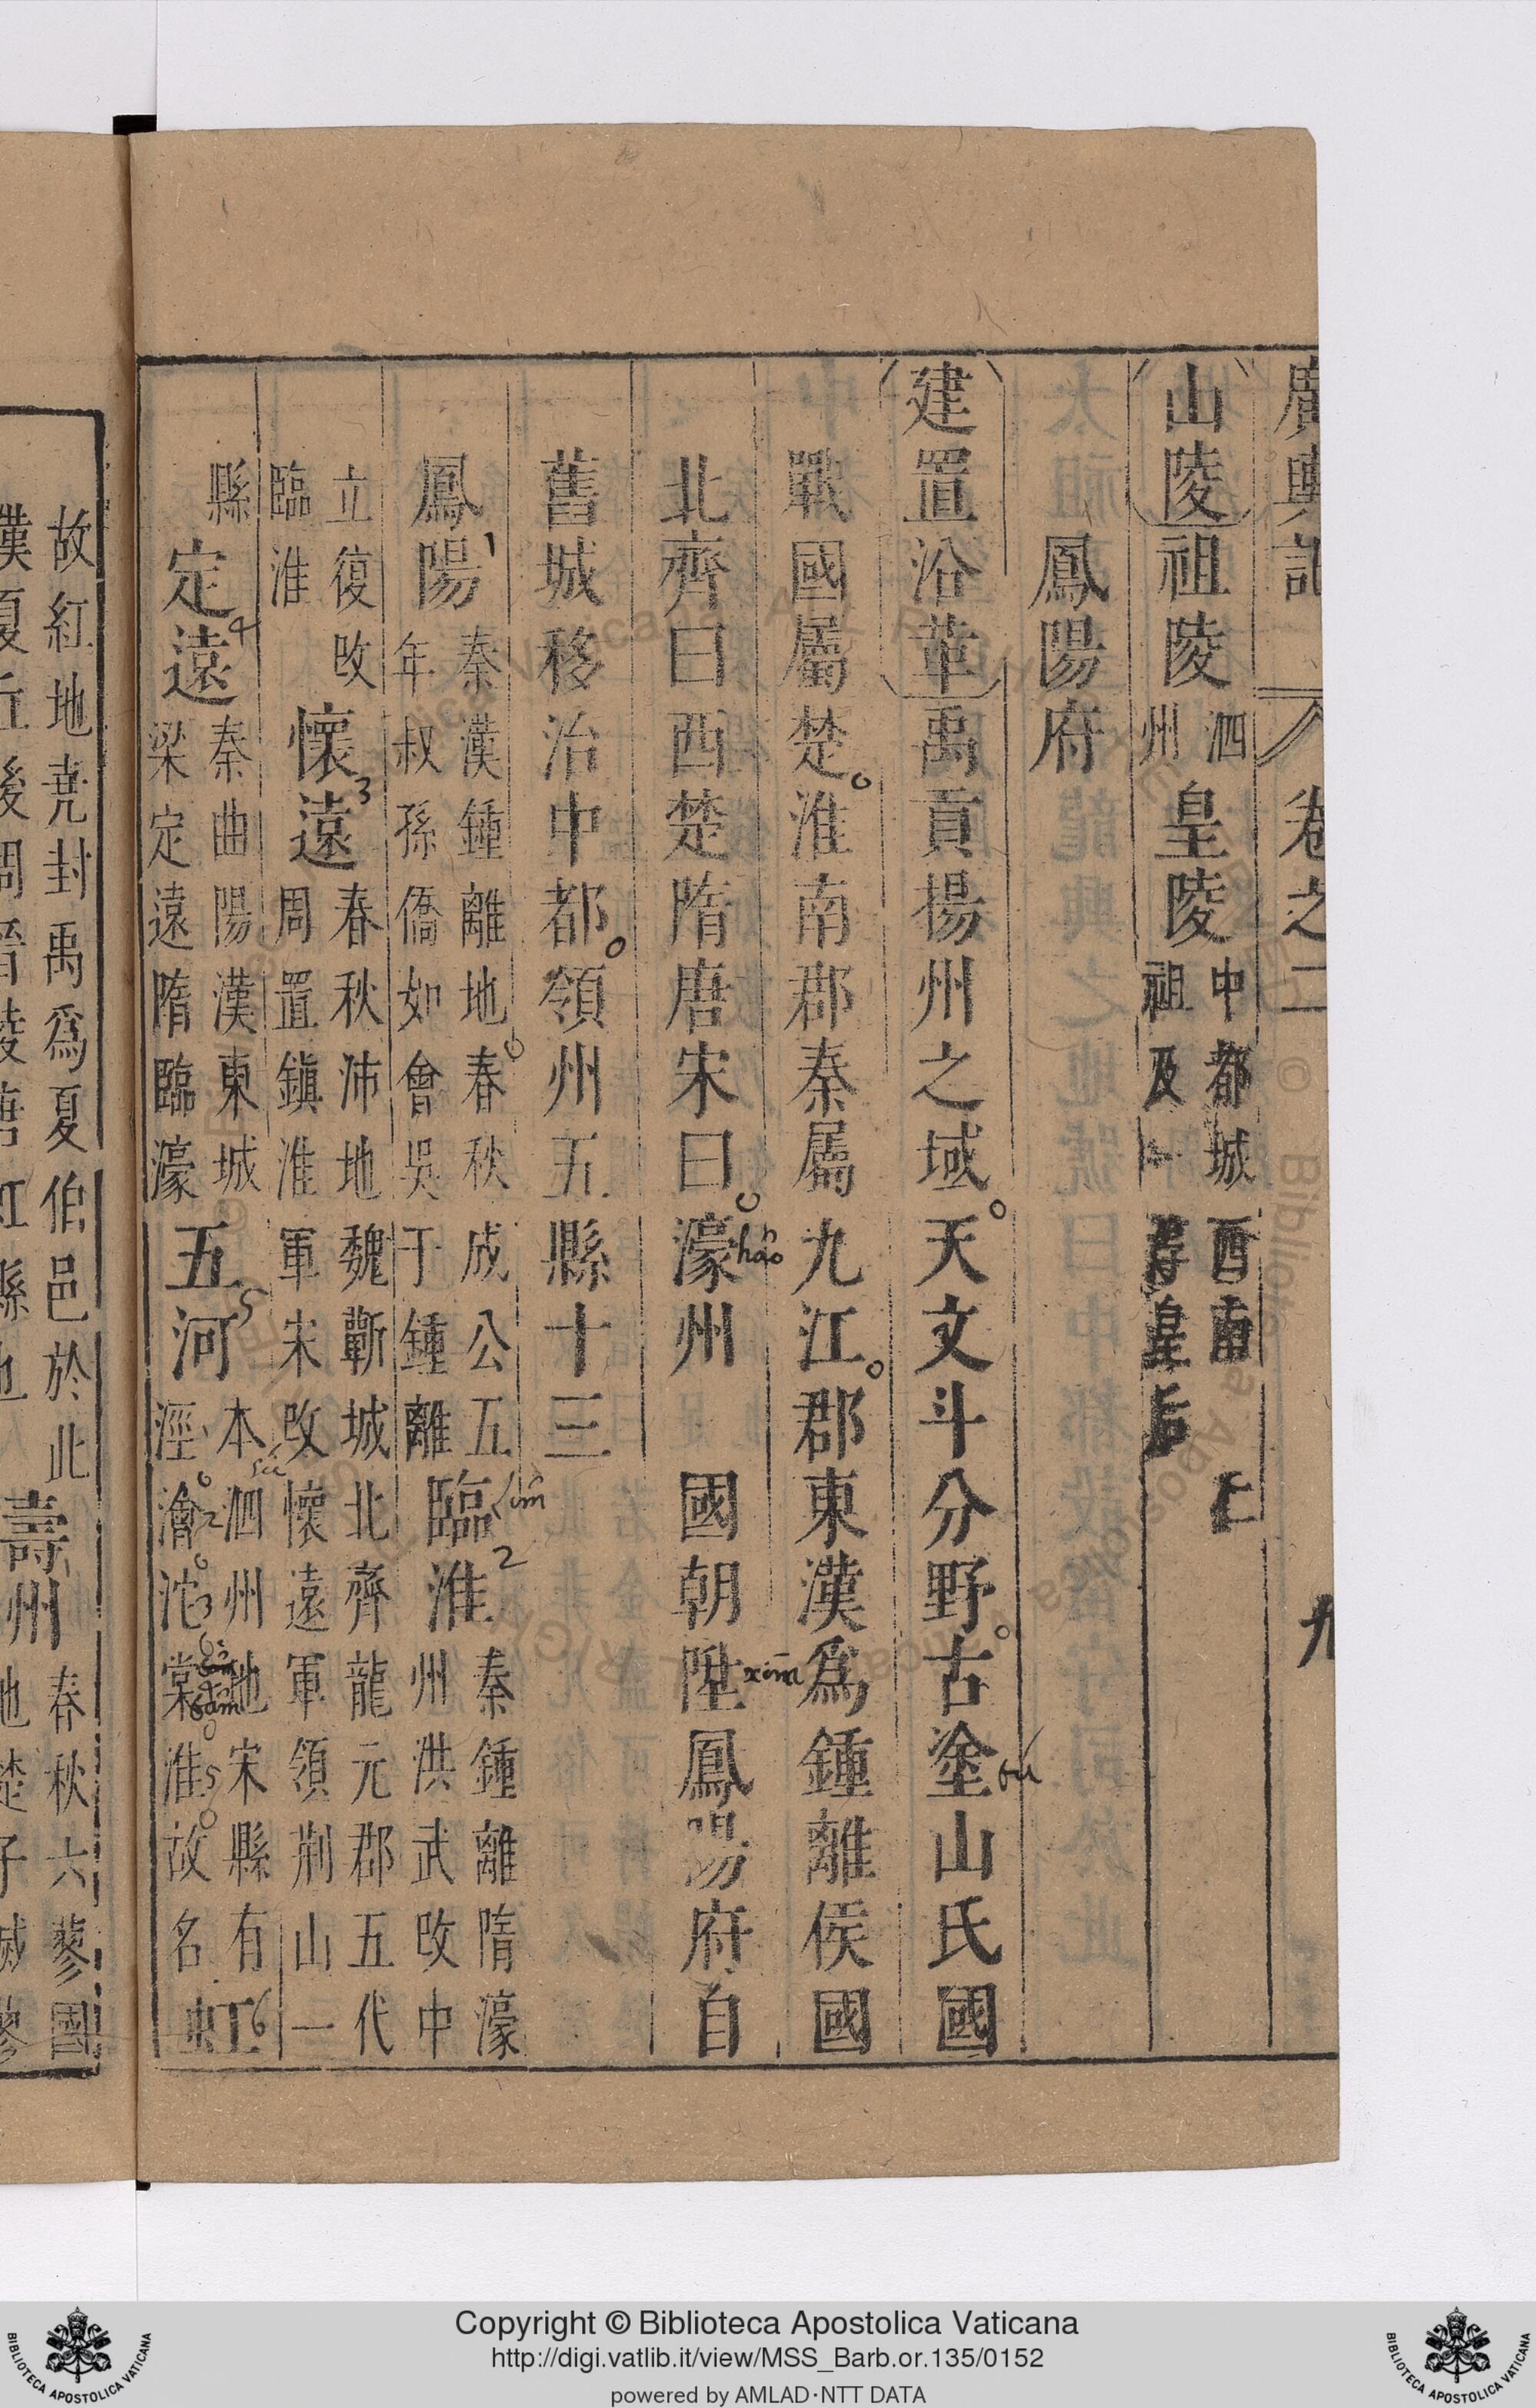 廣輿記 卷之二 九
山陵 祖陵 泗州 皇陵 中都城酉南 祖及 皇 仁
鳳陽府
建置沿革 禹貢揚州之域天文斗分野古塗山氏國 tû
戰國屬楚淮南郡秦屬九江郡東漢為鍾離侯國
北齊曰西楚隋唐宋曰濠州 國朝陞鳳陽府自 hâo xīm
舊城移治中都領州五縣十三
鳳陽 1 秦漢鍾離地春秋成公五年叔孫僑如會吳于鍾離 臨淮 lîm 2 秦鍾離隋濠州洪武改中
立復改臨淮 懷遠 3 春秋沛地魏蘄城北齊龍元郡五代周置鎮淮軍宋改懷遠軍領荊山一
縣 定遠 4 秦曲陽漢東城梁定遠隋臨濠 五河 5 本泗州地宋縣有浍澮沱棠淮故名 虹 6
故紅地堯封禹為夏伯邑於此 壽州 春秋六蓼國
Copyright © Biblioteca Apostolica Vaticana
http://digi.vatlib.it/view/MSS_Barb.or.135/0152
powered by AMLAD·NTT DATA
BIBLIOTECA APOSTOLICA VATICANA
BIBLIOTECA APOSTOLICA VATICANA